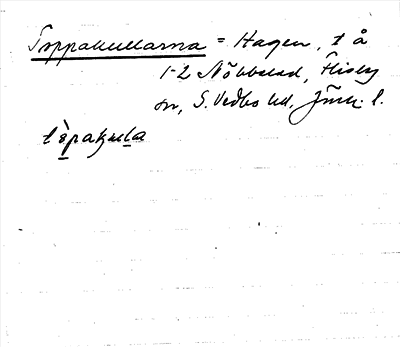 Toppakullarna = Hagen, t å
1-2 Nöbbelad, Flisby
sn, S. Vedbo hd, Jönk. l.
tòpakula